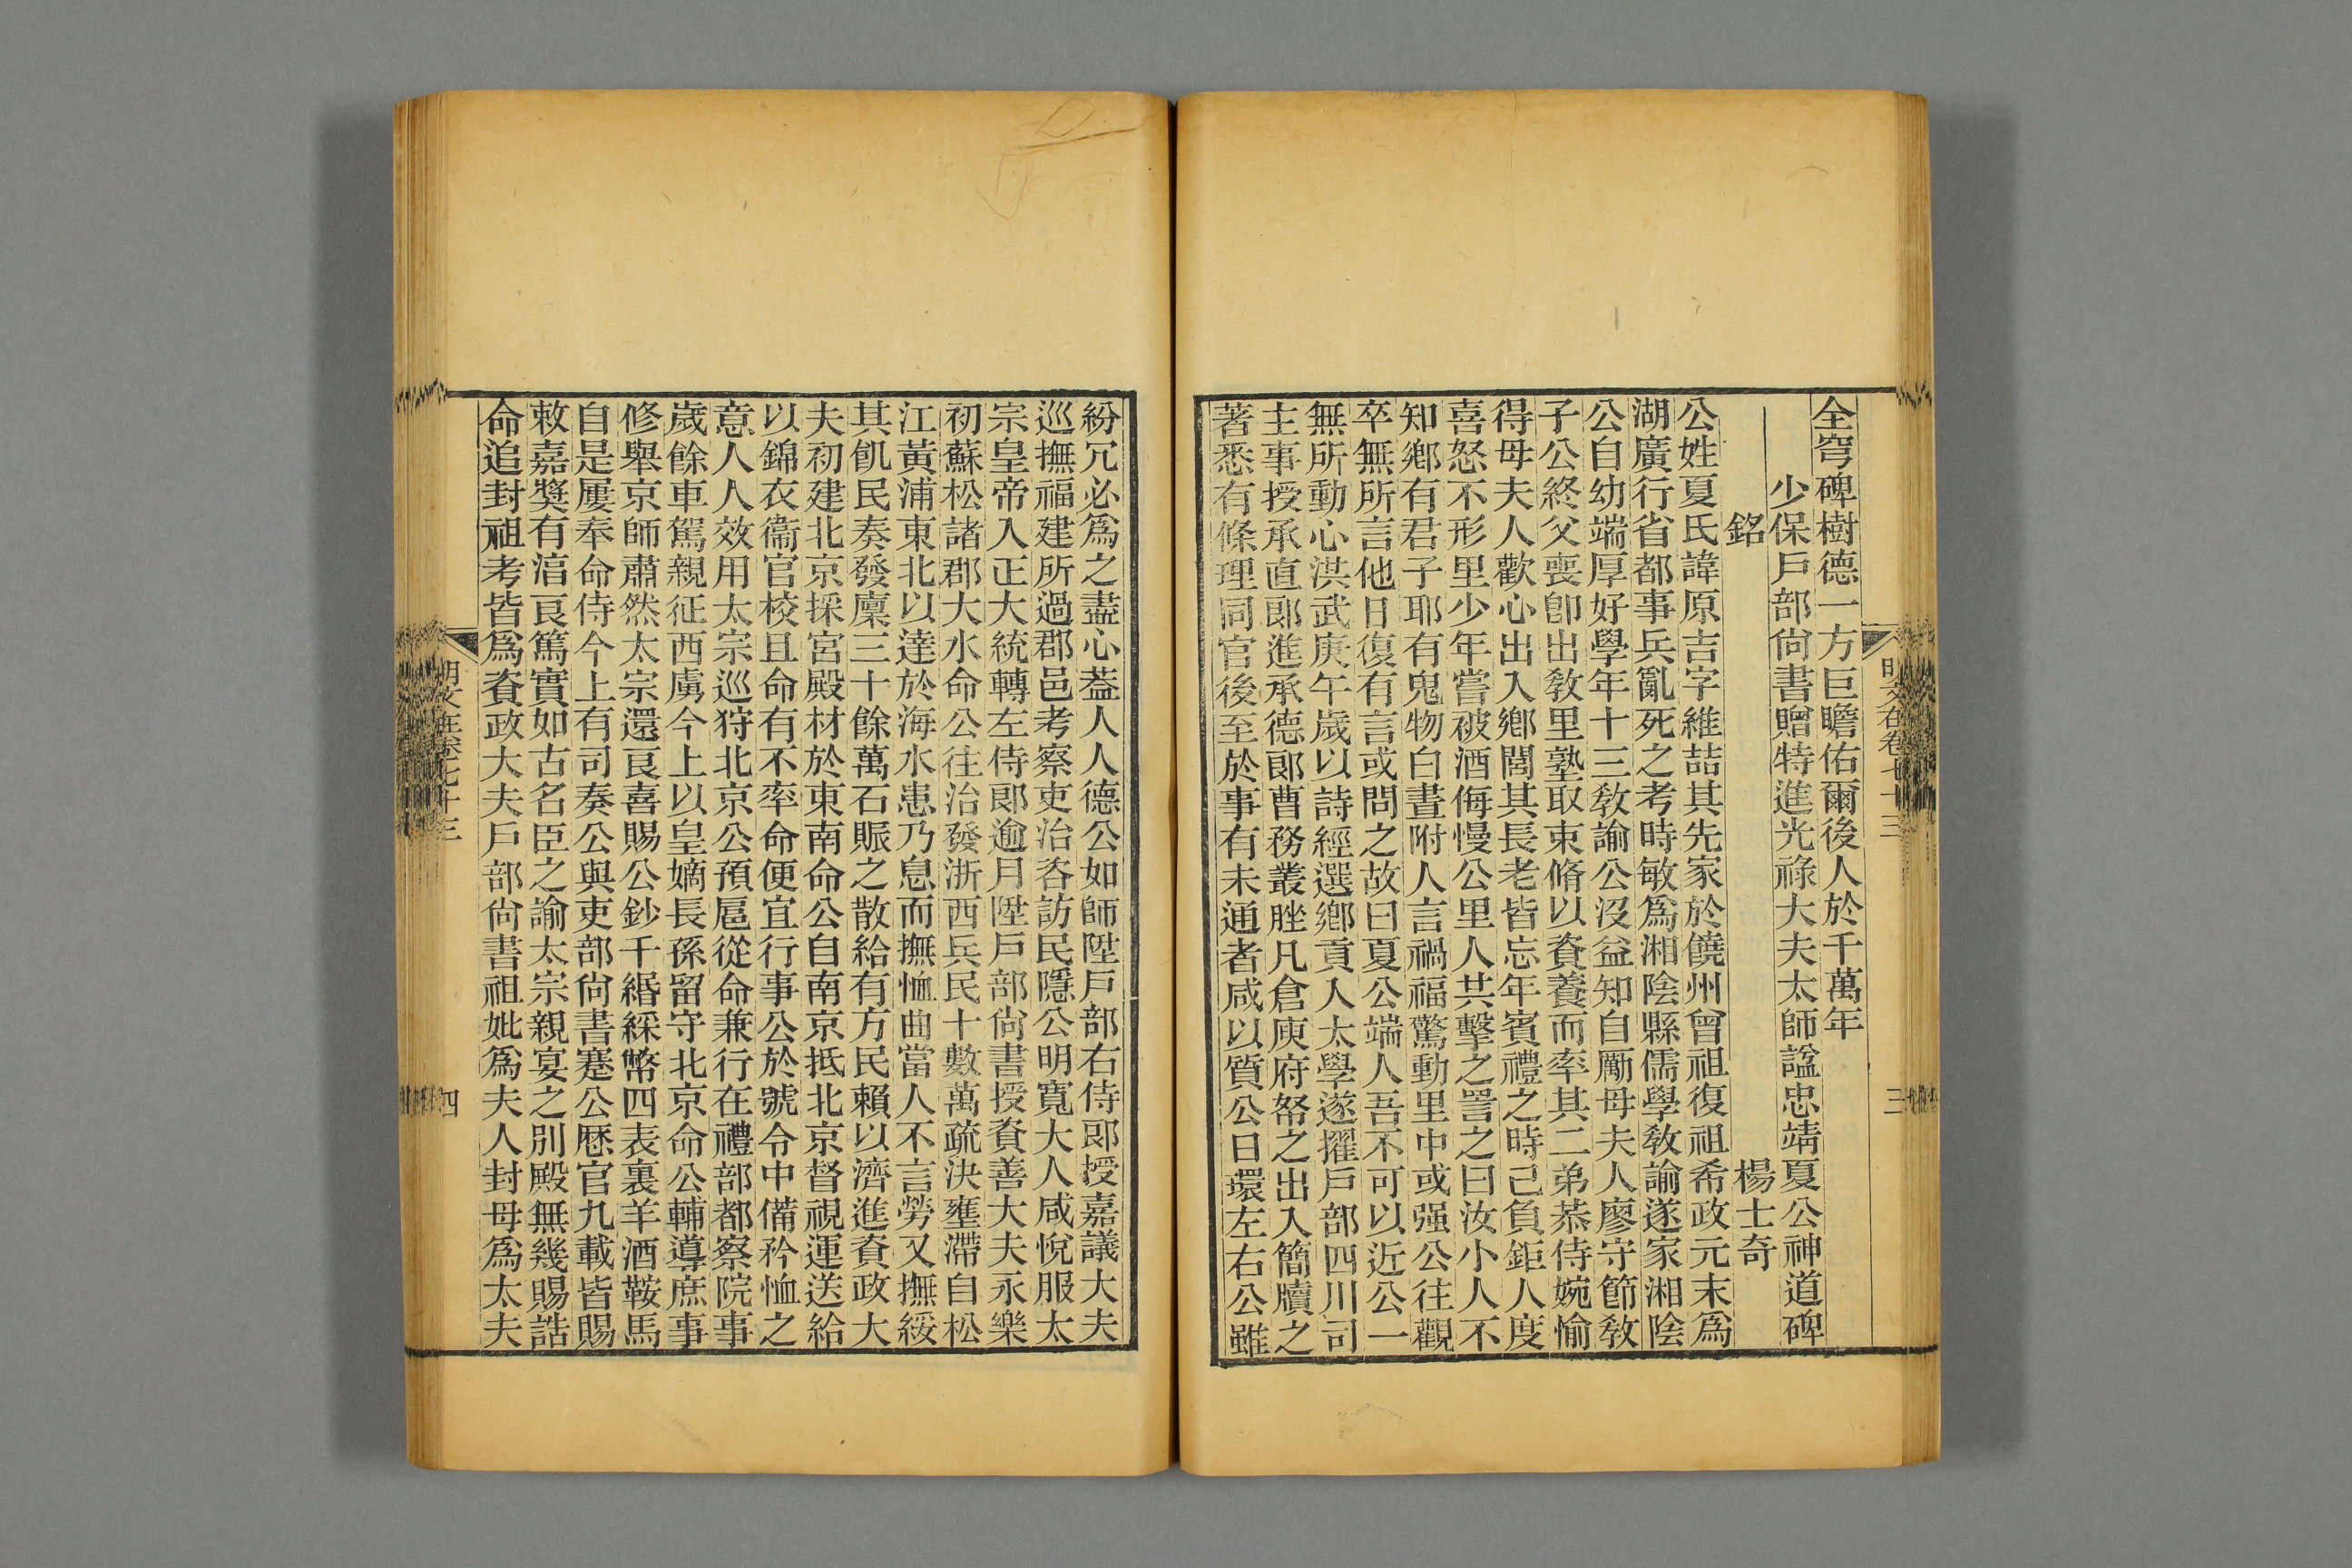 全穹碑樹德一方巨瞻佑爾後人於千萬年
少保戶部尙書贈特進光祿大夫太師諡忠靖夏公神道碑
銘 楊士奇
公姓夏氏諱原吉字維喆其先家於饒州曾祖復祖希政元末爲
湖廣行省都事兵亂死之考時敏爲湘陰縣儒學敎諭遂家湘陰
公自幼端厚好學年十三敎諭公沒益知自勵母夫人廖守節敎
子公終父喪卽出敎里塾取束脩以資養而率其二弟恭侍婉愉
得母夫人歡心出入鄕閭其長老皆忘年賓禮之時己負鉅人度
喜怒不形里少年嘗被酒侮慢公里人共擊之詈之曰汝小人不
知鄕有君子耶有鬼物白晝附人言禍福驚動里中或强公往觀
卒無所言他日復有言或問之故曰夏公端人吾不可以近公一
無所動心洪武庚午歲以詩經選鄕貢入太學遂擢戶部四川司
主事授承直郞進承德郞曹務叢脞凡倉庾府帑之出入簡牘之
著悉有條理同官後至於事有未通者咸以質公日環左右公雖
明文在卷七十三
三
紛冗必爲之盡心葢人人德公如師陞戶部右侍郞授嘉議大夫
巡撫福建所過郡邑考察吏治咨訪民隱公明寬大人咸悅服太
宗皇帝入正大統轉左侍郞逾月陞戶部尙書授資善大夫永樂
初蘇松諸郡大水命公往治發浙西兵民十數萬疏決壅滯自松
江黃浦東北以達於海水患乃息而撫恤曲當人不言勞又撫綏
其飢民奏發廩三十餘萬石賑之散給有方民賴以濟進資政大
夫初建北京採宮殿材於東南命公自南京抵北京督視運送給
以錦衣衞官校且命有不率命便宜行事公於號令中備矜恤之
意人人效用太宗巡狩北京公預扈從命兼行在禮部都察院事
歲餘車駕親征西虜今上以皇嫡長孫留守北京命公輔導庶事
修舉京師肅然太宗還良喜賜公鈔千緡綵幣四表裏羊酒鞍馬
自是屢奉命侍今上有司奏公與吏部尙書蹇公歷官九載皆賜
敕嘉奬有湻良篤實如古名臣之諭太宗親宴之別殿無幾賜誥
命追封祖考皆爲資政大夫戶部尙書祖妣爲夫人封母爲太夫
明文在卷七十三
四